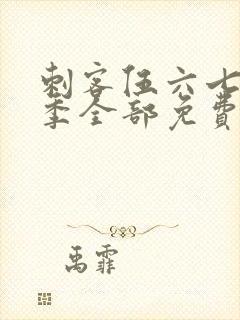 刺客伍六七
季全部免费
禹霏